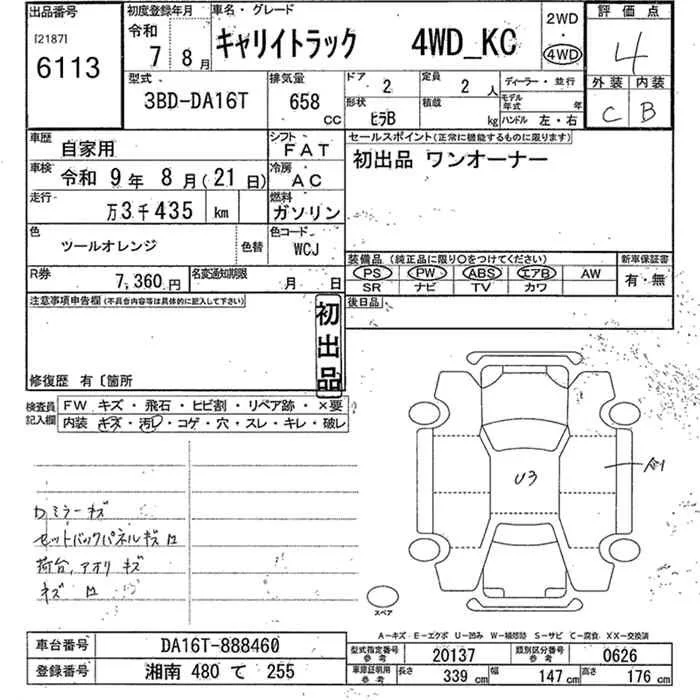 出品番号
[2187]
6113
初度登録年月
令和
7 8月
車名・グレード
キャリイトラック 4WD_KC
2WD
・
4WD
評価点
4
外装 内装
C B
型式
3BD-DA16T
排気量
658
cc
ドア
2
定員
2 人
ディーラー・並行
形状
ヒラB
積載
kg
モデル年式 年
ハンドル 左・右
車歴
自家用
シフト
FAT
車検
令和 9年 8月(21日)
冷房
AC
走行
万3千435 km
燃料
ガソリン
色
ツールオレンジ
色替
色コード
WCJ
R券
7,360円
名変通知期限
月 日
セールスポイント(正常に機能するものに限ります)
初出品 ワンオーナー
装備品(純正品に限り○をつけてください)
新車保証書
PS PW ABS エアB AW
有・無
SR ナビ TV カワ
後日品
注意事項申告欄(不具合内容等は具体的に記入して下さい)
初出品
修復歴 有〔箇所
検査員記入欄
FW キズ・飛石・ヒビ割・リペア跡・×要
内装 キズ・汚レ・コゲ・穴・スレ・キレ・破レ
Dミラーキズ
セットバックパネルキズ
荷台、アオリキズ
U3
A1
スペア
A-キズ E-エクボ U-凹み W-補修跡 S-サビ C-腐食 XX-交換済
車台番号 DA16T-888460
登録番号 湘南 480 て 255
型式指定番号 参考 20137
類別区分番号 参考 0626
車庫証明用 参考 長さ 339 cm 幅 147 cm 高さ 176 cm